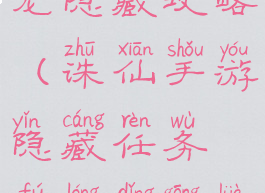 龙隐藏攻略
zhū xiān shǒu yóu
(诛仙手游
yǐn cáng rèn wù
隐藏任务
fú lóng dǐng gōng lüè